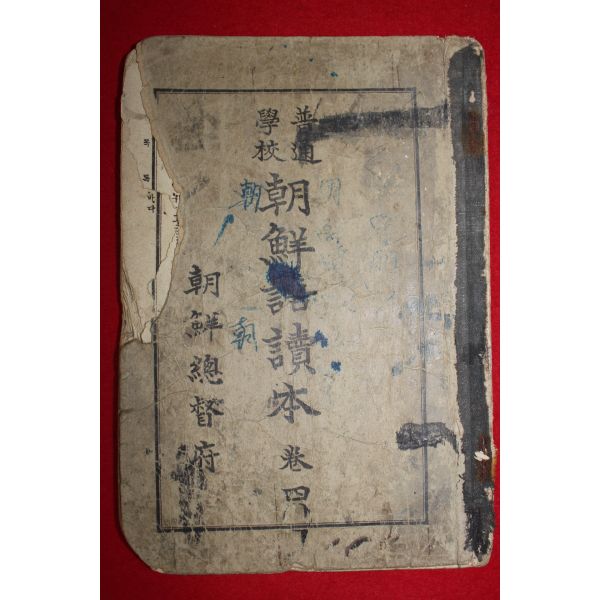 普通
學校
朝鮮語讀本 卷四
朝
朝
朝鮮總督府